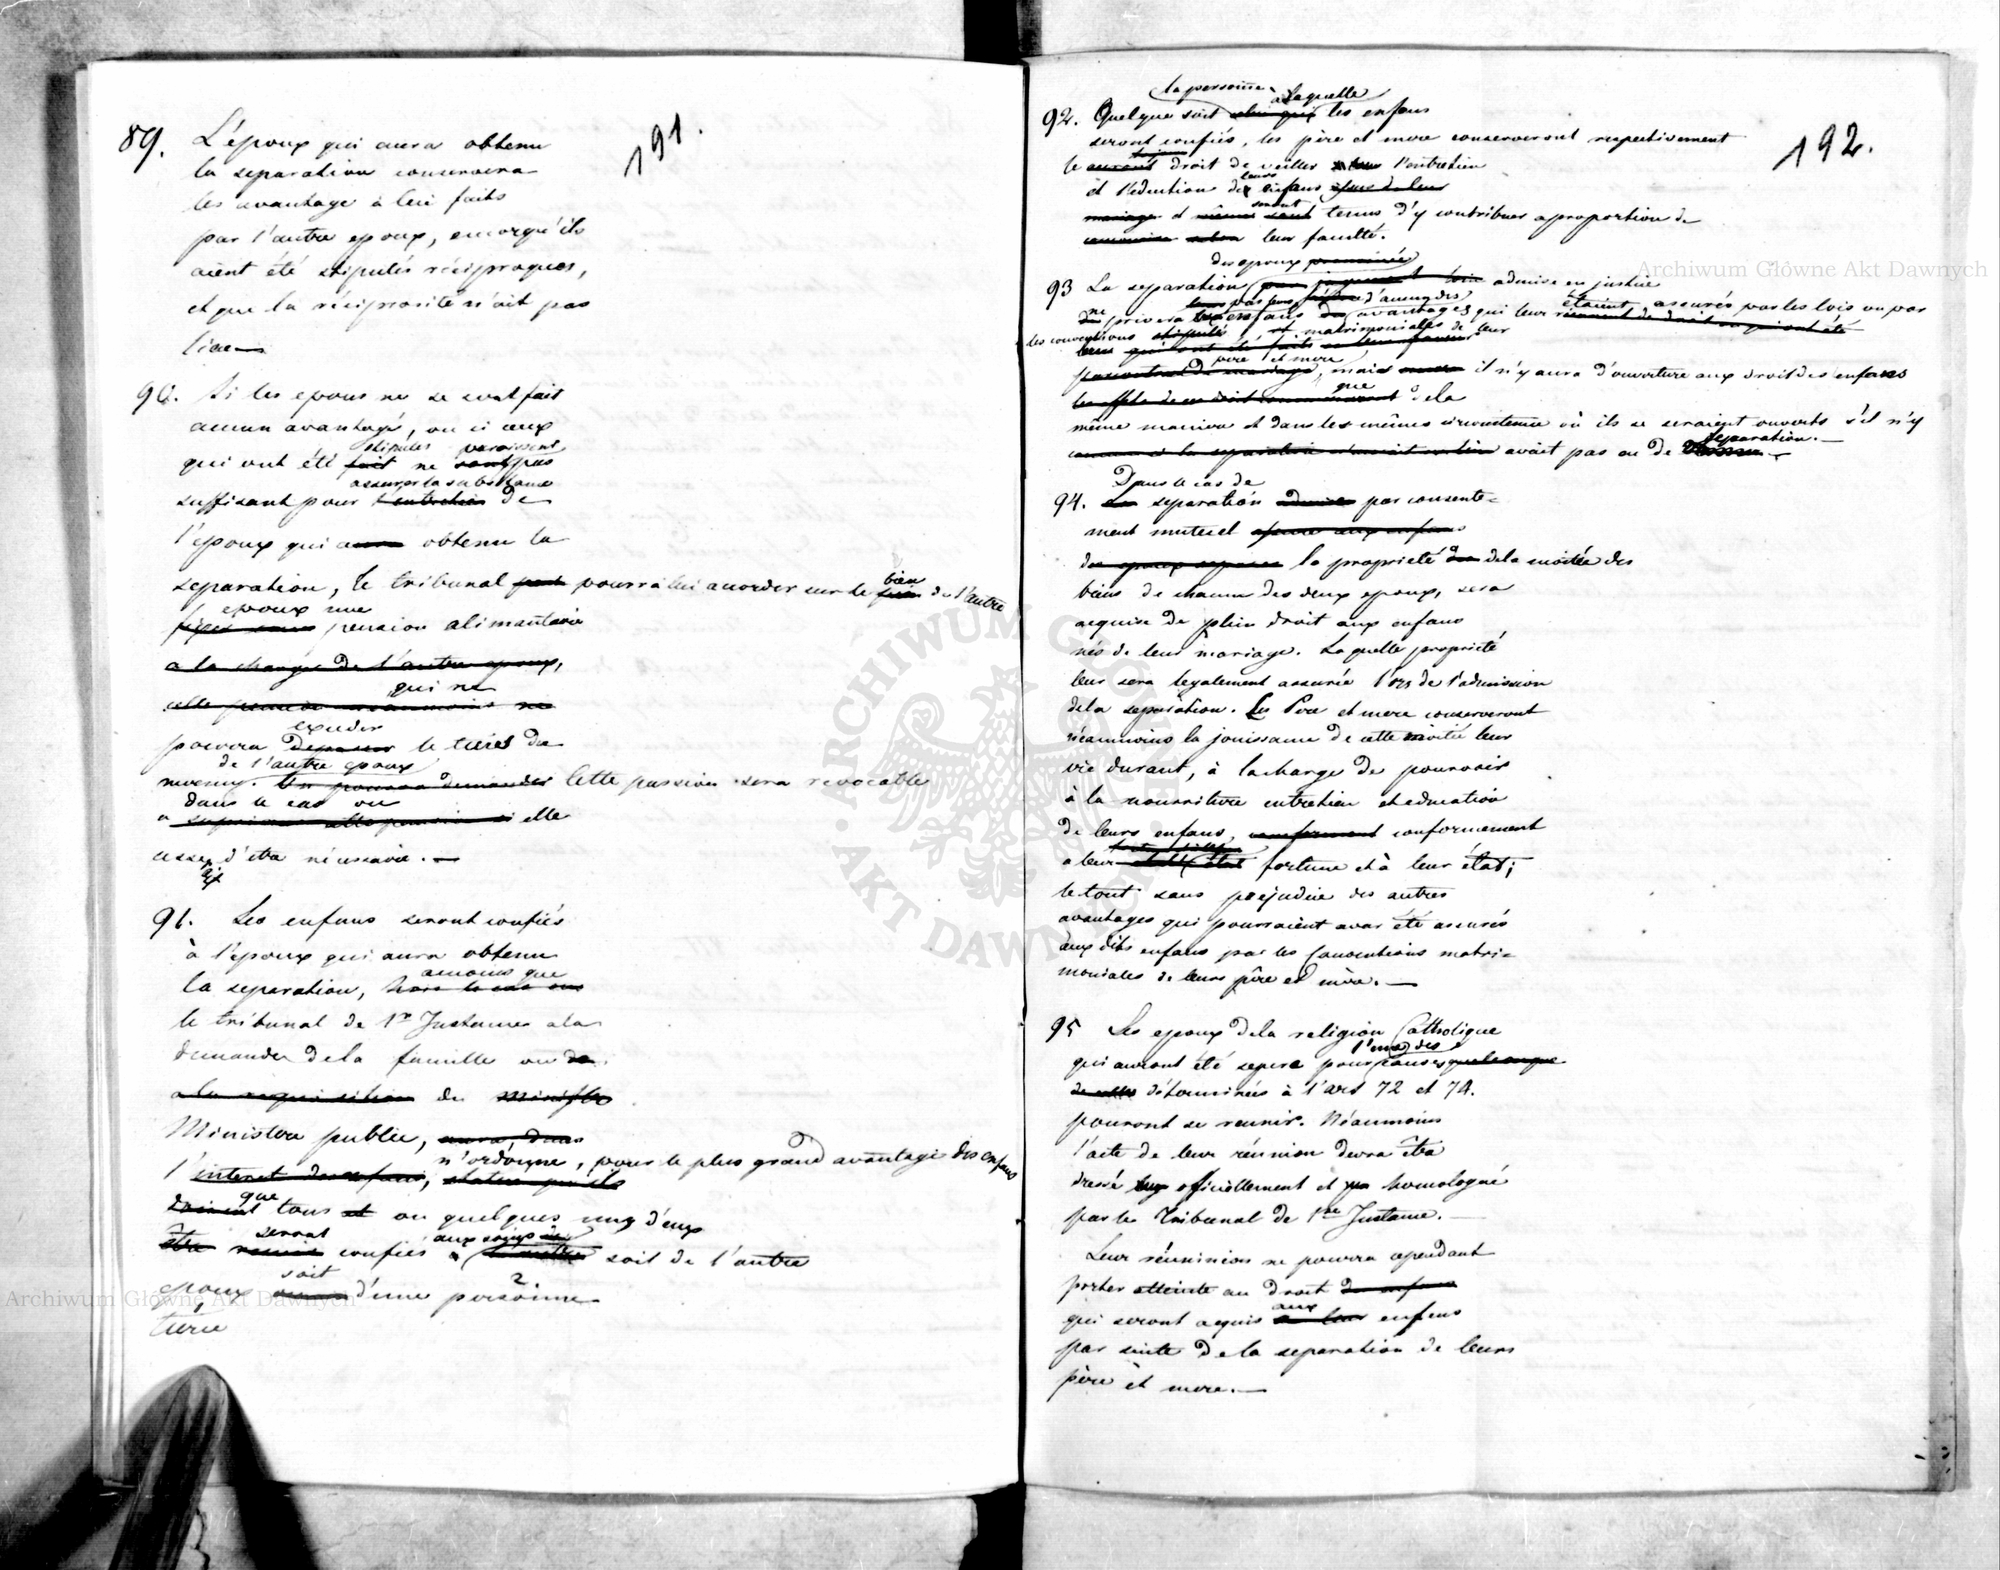 191.
89. L'époux qui aura obtenu
la separation conservera
les avantage à lui faits
par l'autre epoux, encorqu'ils
aient été stipulés réciproques,
et que la réciprocité n'ait pas
lieu
90. Si les epous ne se sont fait
aucun avantagé, ou si ceux
stipulés paroissent
qui ont été fait ne sont pas
assurer la subsistance
suffisant pour l'entretien de
l'epoux qui aura obtenu la
separation, le tribunal peut pourra lui accorder sur le bien de l'autre
epoux une
pension alimentaire
a la charge de l'autre epoux,
qui ne
celle pension neanmoins ne
exceder
pourra depasser le tiers du
de l'autre epoux
revenu. On pourra demander Cette pension sera revocable
dans le cas ou
a supprimer cette pension si elle
cesse d'etre nécessaire.
91. Les enfans seront confiés
à l'epoux qui aura obtenu
amoins que
la separation, hors le cas ou
le tribunal de 1re Instance a la
demande de la famille ou de
a la requisition du Ministre
Ministere public,
n'ordonne, pour le plus grand avantage des enfans
l'interet des enfans, statue qu'ils
que
doivent tous et ou quelques uns d'eux
seront aux soins
être remis confiés a soit de l'autre
soit 2.
epoux ou d'une personne
tierce
192.
la personne a laquelle
92. Quelque soit celui qui les enfans
seront confiés, les père et mere conserveront respectivement
le droit de veiller a leur l'entretien
leurs
et l'education des enfans issus de leur
seront
mariage et même sont tenus d'y contribuer a proportion de
leur faculté.
des epoux prononcée
93 La separation par jugement admise en justice
ne privera les enfans d'aucun des avantages qui leur étaient assurés par les lois ou par
les conventions stipulés matrimoniales de leur
père et mere
par contrat de mariage, mais il n'y aura d'ouverture aux droit des enfans
que
les effets de ce droit de la
même maniere et dans les mêmes circonstence où ils se seraient ouverts s'il n'y
separation.
comme si la separation n'avait eu lieu avait pas eu de
Dans le cas de
94. La separation admise par consente=
ment mutuel
des epoux separés la propriété de la moitée des
biens de chacun des deux epoux, sera
acquise de plein droit aux enfans
nés de leur mariage. Laquelle propriété
leur sera legalement assurée lors de l'admission
de la separation. Les Pere et mere conserveront
néanmoins la jouissance de cette moitié leur
vie durant, à lacharge de pourvoir
à la nourriture entretien et education
de leurs enfans, conformement conformement
a leur fortune et à leur état;
le tout sans prejudice des autres
avantages qui pourraient avoir été assurés
aux dits enfans par les Conventions matri=
moniales de leurs père et mère.
95 Les epoux de la religion Catholique
l'une des
qui auront été sepere pour causes quelconque
de celles déterminées à l'art 72 et 74.
pouront se reunir. Néanmoins
l'acte de leur réunion devra être
dressé officiellement et homologué
par le Tribunal de 1re Instance.
Leur réuninion ne pourra cependant
porter atteinte au droit des enfans
aux
qui seront acquis a leur enfens
par suite de la separation de leurs
père et mere.
Archiwum Główne Akt Dawnych
Archiwum Główne Akt Dawnych
ARCHIWUM GŁÓWNE AKT DAWNYCH